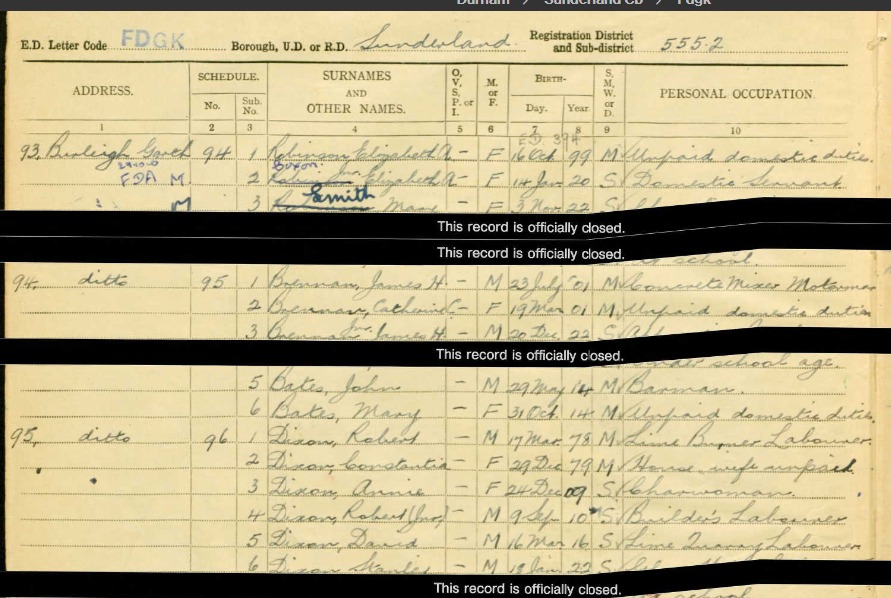 Durham > Sunderland CB > Fdgk
E.D. Letter Code FDGK Borough, U.D. or R.D. Sunderland. Registration District and Sub-district 555·2
ADDRESS. SCHEDULE. No. Sub. No. SURNAMES AND OTHER NAMES. O, V, S, P, or I. M. or F. BIRTH- Day. Year. S, M, W, or D. PERSONAL OCCUPATION.
1 2 3 4 5 6 7 8 9 10
93, Burleigh Garth 94 1 Robinson Elizabeth A - F 16 Oct 99 M Unpaid domestic duties.
FDA M. 2 Dixon Robinson Jnr. Elizabeth A - F 14 Jan 20 S Domestic Servant
M 3 Smith Robinson Mary - F 3 Nov. 22 S
This record is officially closed.
This record is officially closed.
school.
94, ditto 95 1 Brennan, James H. - M 23 July 01 M Concrete Mixer Motorman
2 Brennan, Catherine - F 19 Mar 01 M Unpaid domestic duties
3 Brennan Jnr. James H. - M 20 Dec. 22 S
This record is officially closed.
under school age.
5 Bates, John - M 29 May 14 M Barman.
6 Bates, Mary - F 31 Oct. 14 M Unpaid domestic duties.
95, ditto 96 1 Dixon, Robert - M 17 Mar. 78 M Lime Burner Labourer.
2 Dixon, Constantia - F 29 Dec 79 M House wife unpaid.
3 Dixon, Annie - F 24 Dec 09 S Charwoman.
4 Dixon, Robert (Jnr.) - M 9 Sep. 10 S Builder's Labourer
5 Dixon, David - M 16 Mar 16 S Lime Quarry Labourer
6 Dixon Stanley - M 18 Jan. 22 S
This record is officially closed.
school